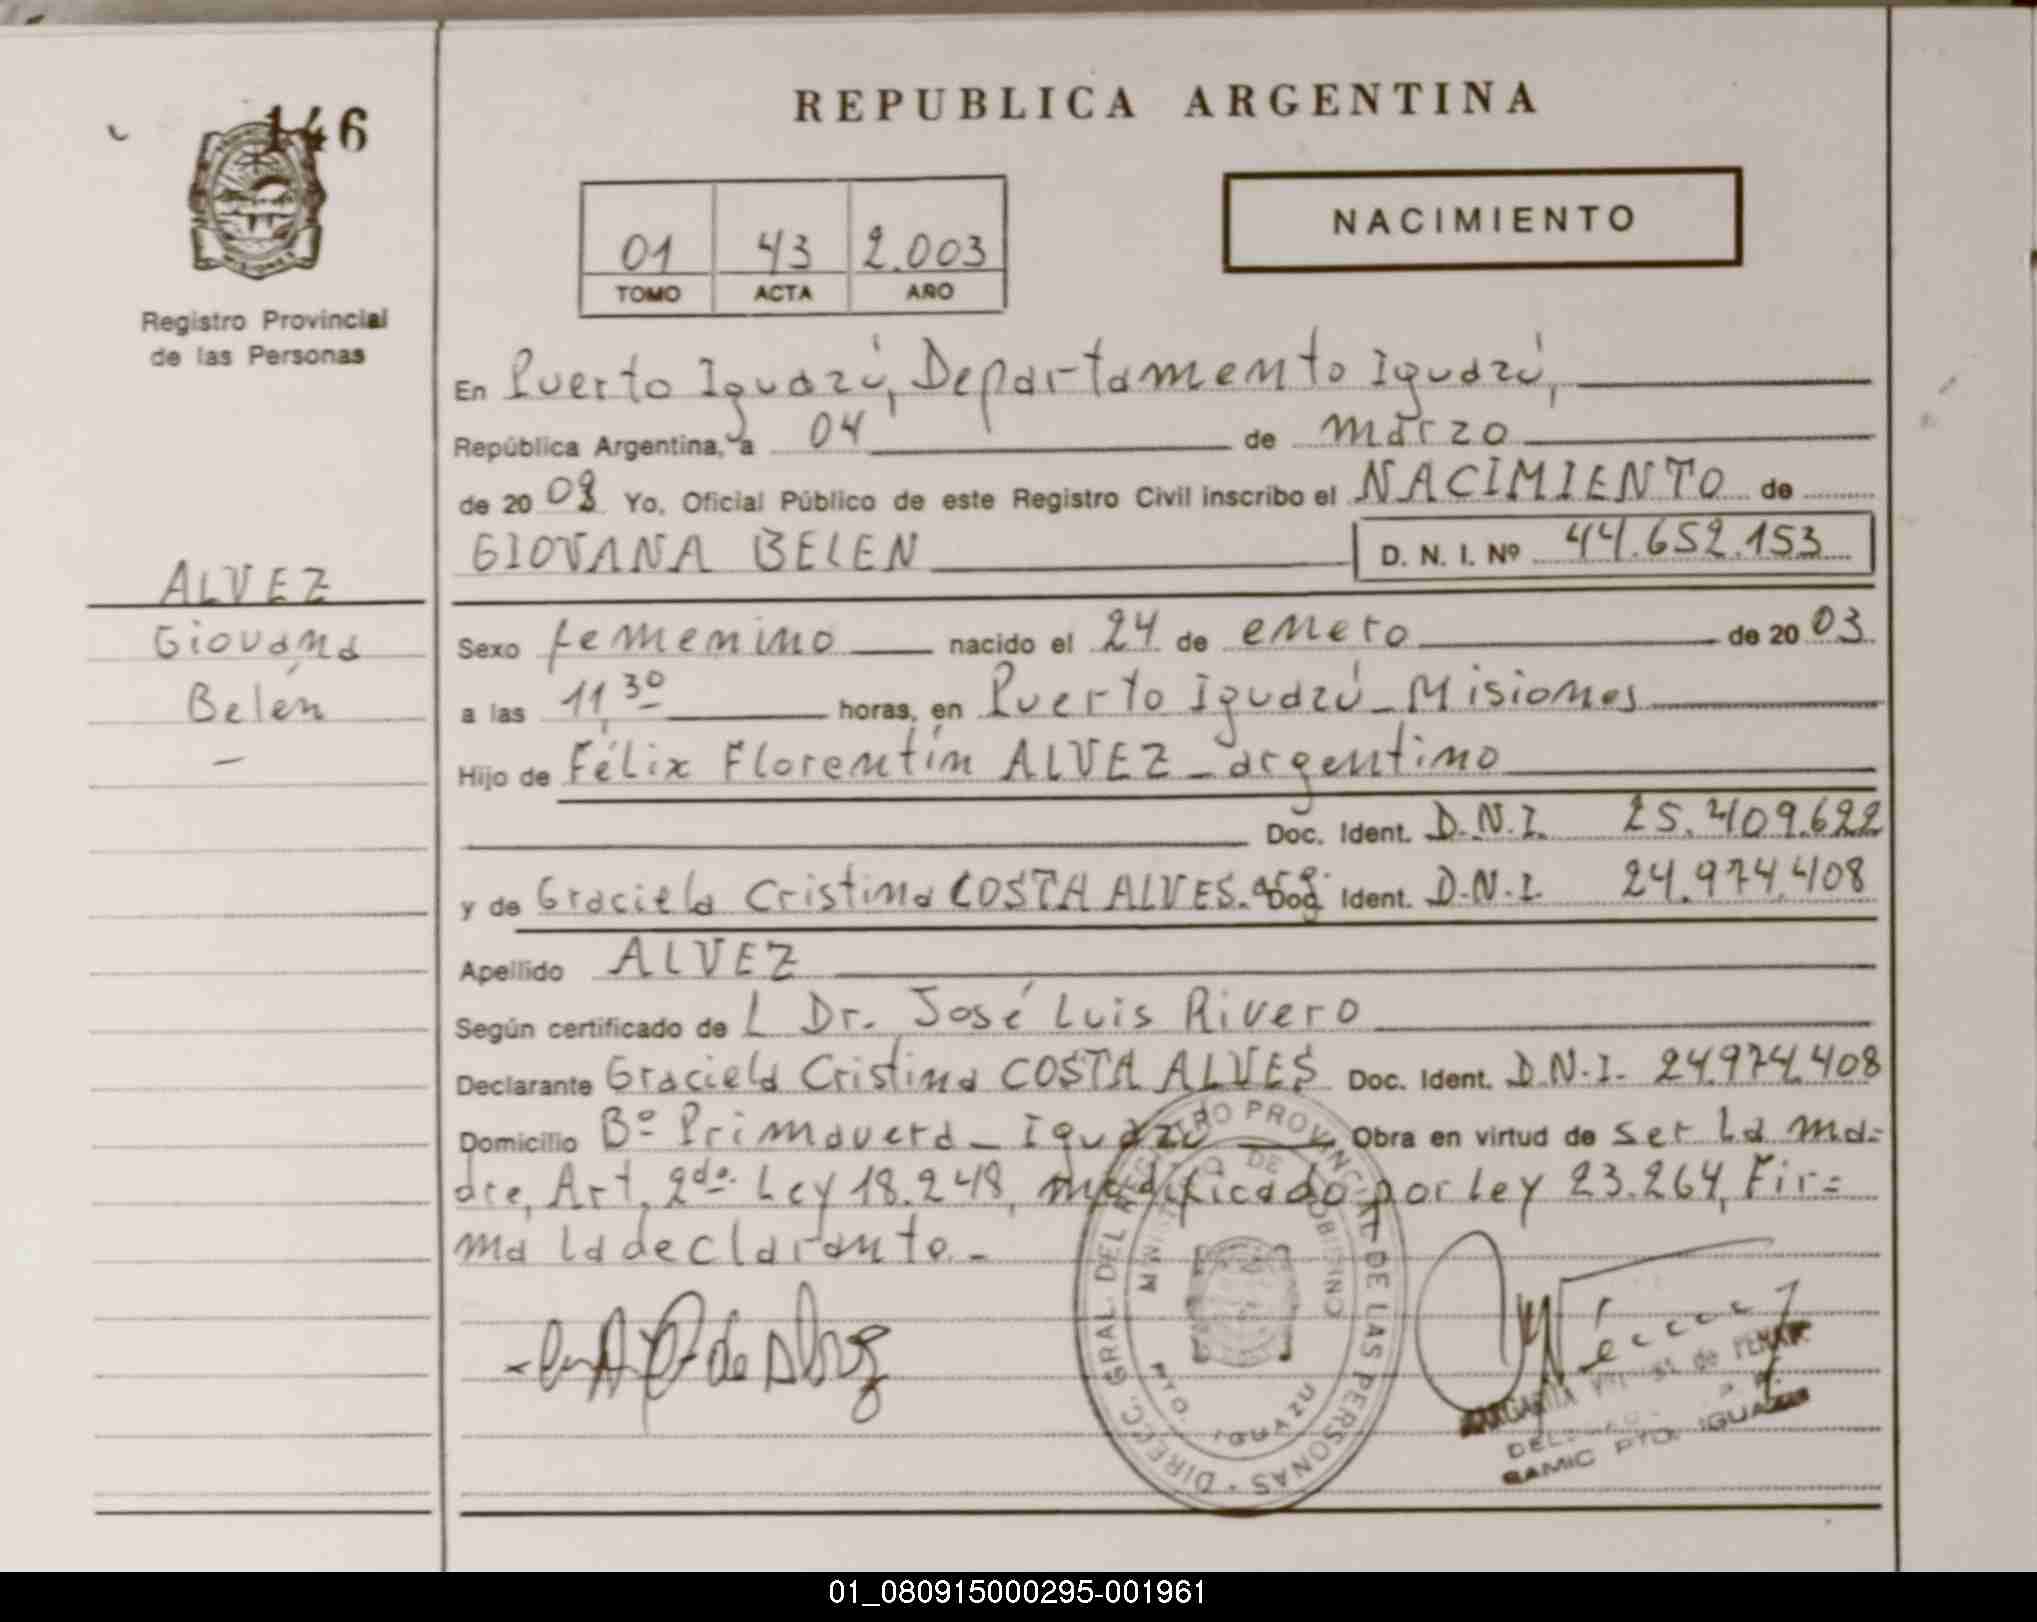 146
REPUBLICA ARGENTINA
NACIMIENTO
01 43 2.003
TOMO ACTA AÑO
Registro Provincial
de las Personas
En Puerto Iguazú, Departamento Iguazú,
República Argentina, a 04 de marzo
de 20 03 Yo, Oficial Público de este Registro Civil inscribo el NACIMIENTO de
GIOVANA BELEN D. N. I. Nº 44.652.153
ALVEZ
Giovana
Belén
Sexo femenino nacido el 24 de enero de 20 03
a las 11,30 horas, en Puerto Iguazú - Misiones
Hijo de Félix Florentín ALVEZ - argentino
Doc. Ident. D.N.I. 25.409.622
y de Graciela Cristina COSTA ALVES. arg. Doc. Ident. D.N.I. 24.974.408
Apellido ALVEZ
Según certificado de L Dr. José Luis Rivero
Declarante Graciela Cristina COSTA ALVES Doc. Ident. D.N.I. 24.974.408
Domicilio Bº Primavera - Iguazú Obra en virtud de ser la ma=
dre, Art. 2do. Ley 18.248, modificado por Ley 23.264, Fir=
ma la declarante.-
DIRECC. GRAL. DEL REGISTRO PROVINCIAL DE LAS PERSONAS
MINISTERIO DE GOBIERNO
PTO. IGUAZU
de Alvez
MARGARITA de
SAMIC PTO. IGUAZU
01_080915000295-001961